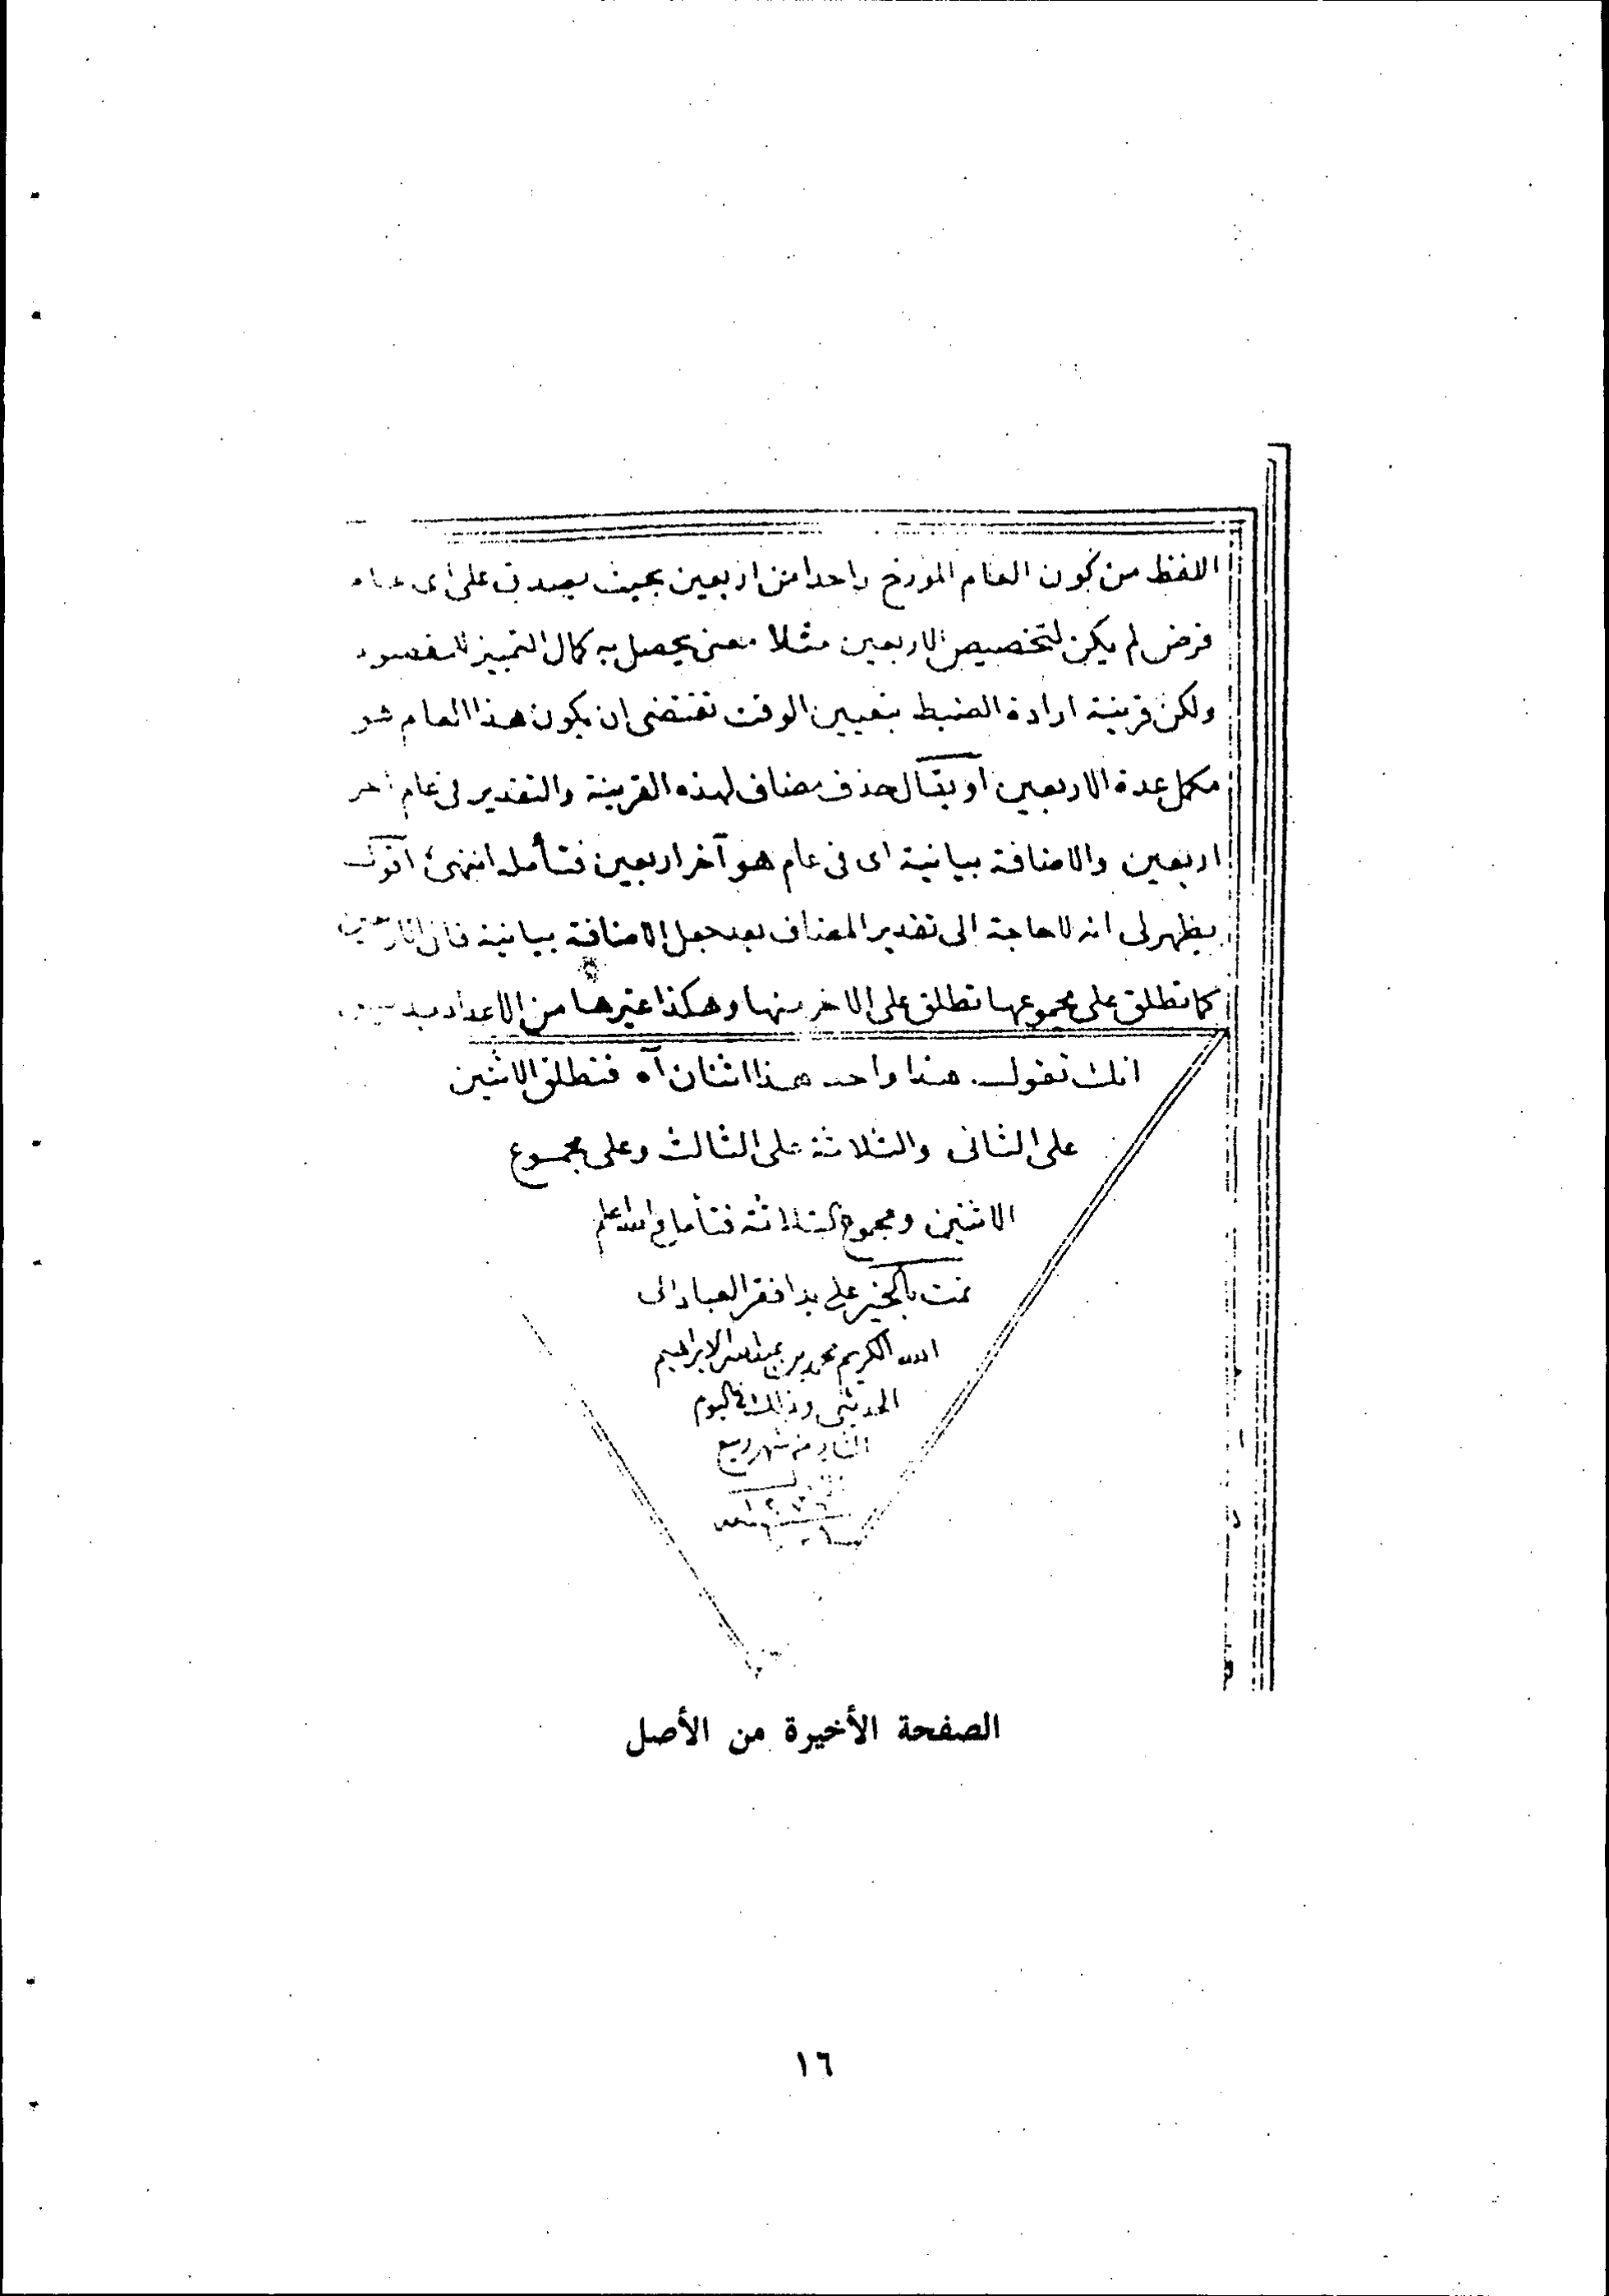 اللفظ من كون العام المورخ واحدا من اربعين بحيث يصدق على اى عام
فرض لم يكن لتخصيص الاربعين مثلا معنى يحصل به كمال التمييز للمقصود
ولكن قرينة ارادة الضبط بتعيين الوقت تقتضى ان يكون هذا العام هو
مكمل عدة الاربعين او يقال حذف مضاف لهذه القرينة والتقدير فى عام آخر
اربعين والاضافة بيانية اى فى عام هو آخر اربعين فتأمله انتهى اقول
يظهر لى انه لا حاجة الى تقدير المضاف بعد جعل الاضافة بيانية فان الاربعين
كما تطلق على مجموعها تطلق على الاخر منها وهكذا غيرها من الاعداد بدليل
انك تقول هذا واحد هذا اثنان آه فتطلق الاثنين
على الثانى والثلاثة على الثالث وعلى مجموع
الاثنين ومجموع الثلاثة فتأمل والله اعلم
تمت بالخير على يد افقر العباد الى
الله الكريم محمد بن عبدالله الابراهيم
الحديثى وذلك فى اليوم
من شهر ربيع
الصفحة الأخيرة من الأصل
١٦